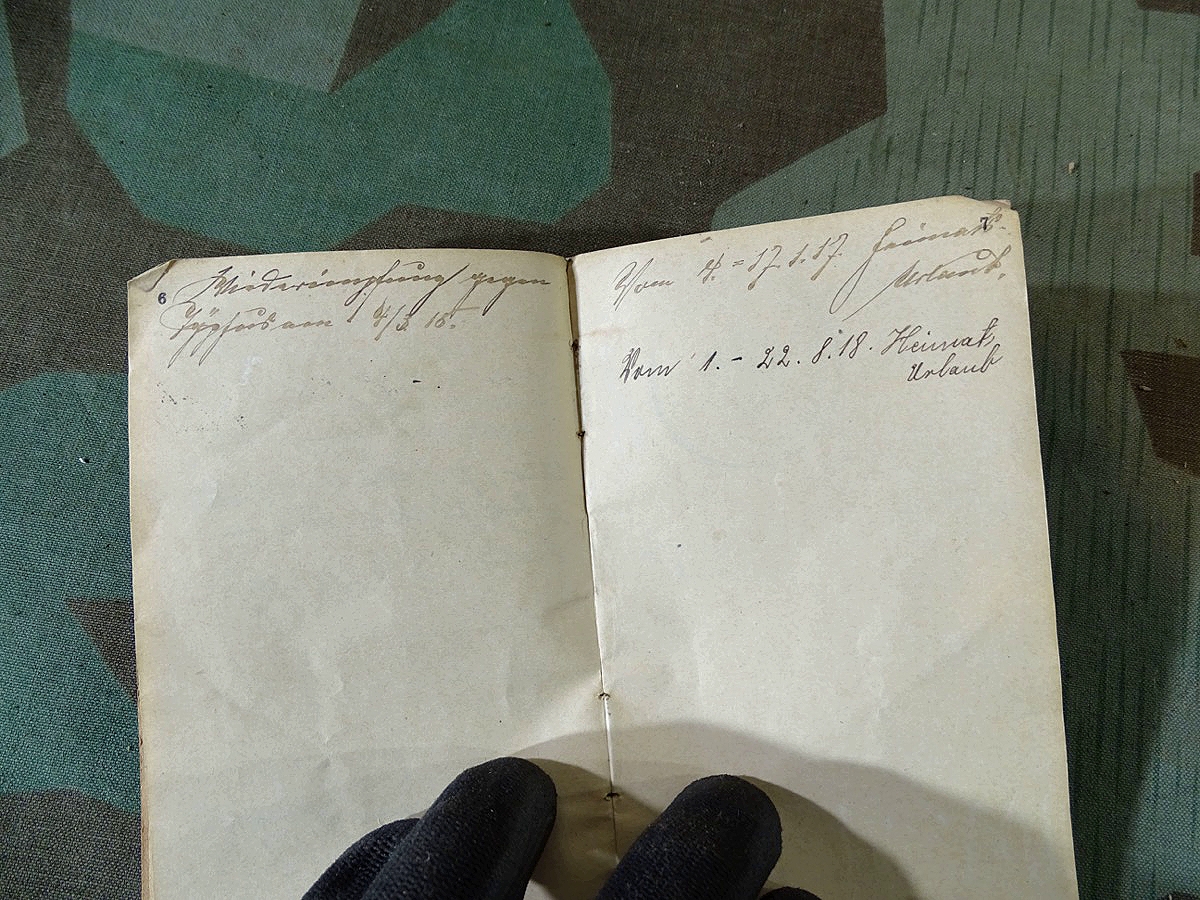 6
Wiederimpfung gegen
Typhus am 4/3 18.
7
Vom 4. = 17.1.17. Heimats-
Urlaub.
Vom 1. - 22.8.18. Heimat
Urlaub